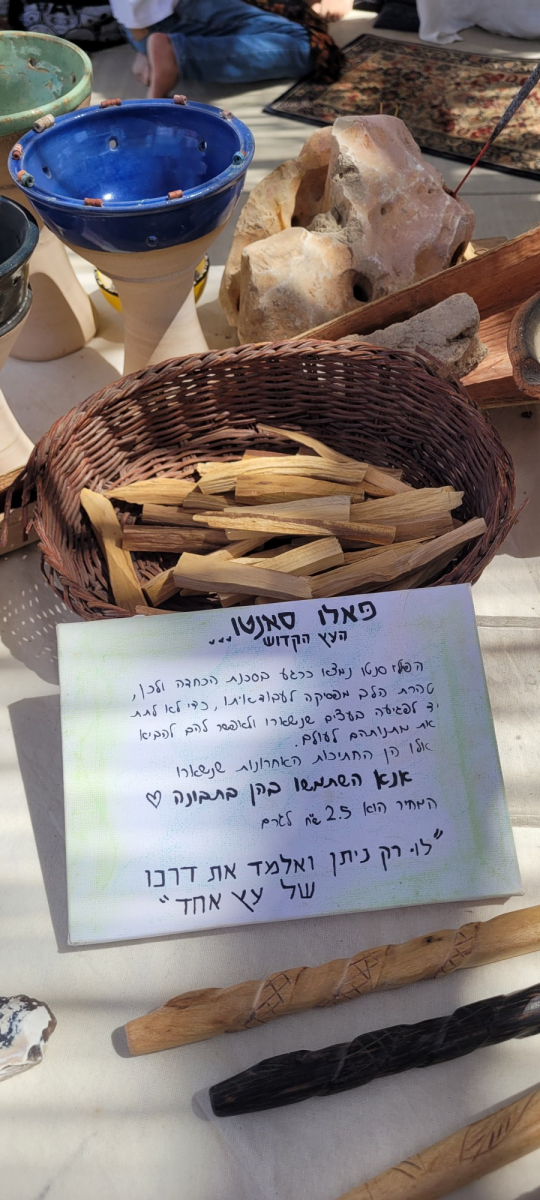 פאלו סאנטו...
העץ הקדוש
הפלו סנטו נמצא כרגע בסכנת הכחדה ולכן,
טהרת הלב מפסיקה לעבוד איתו, כדי לא לתת
יד לפגיעה בעצים שנשארו ולאפשר להם להביא
את מתנותהם לעולם.
אלו הן החתיכות האחרונות שנשארו
אנא השתמשו בהן בתבונה ♡
המחיר הוא 2.5 ש״ח לגרם
״לוי רק ניתן ואלמד את דרכו
של עץ אחד״